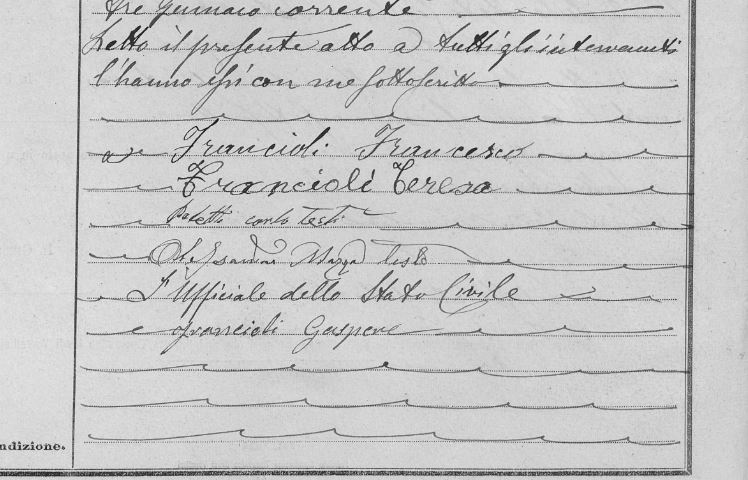 tre Gennaio corrente
Letto il presente atto a tutti gli intervenuti
l'hanno essi con me sottoscritto
Francioli Francesco
Francioli Teresa
Carlo testi
Alessandro Mazza testo
L'Uffiziale dello Stato Civile
Francioli Gaspere
ndizione.